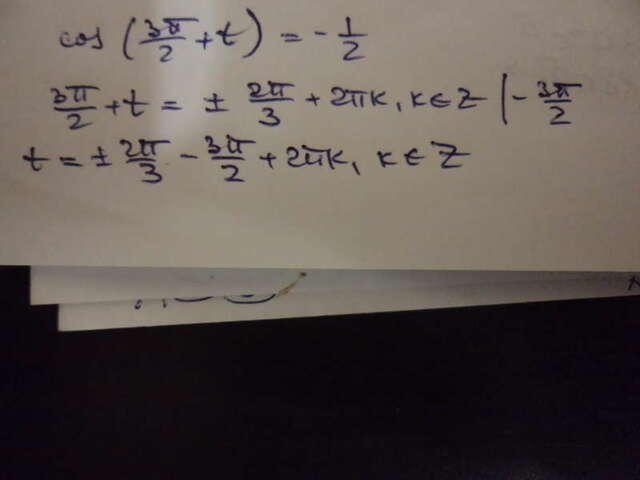 cos (3π/2 + t) = - 1/2
3π/2 + t = ± 2π/3 + 2πk, k ∈ Z | - 3π/2
t = ± 2π/3 - 3π/2 + 2πk, k ∈ Z